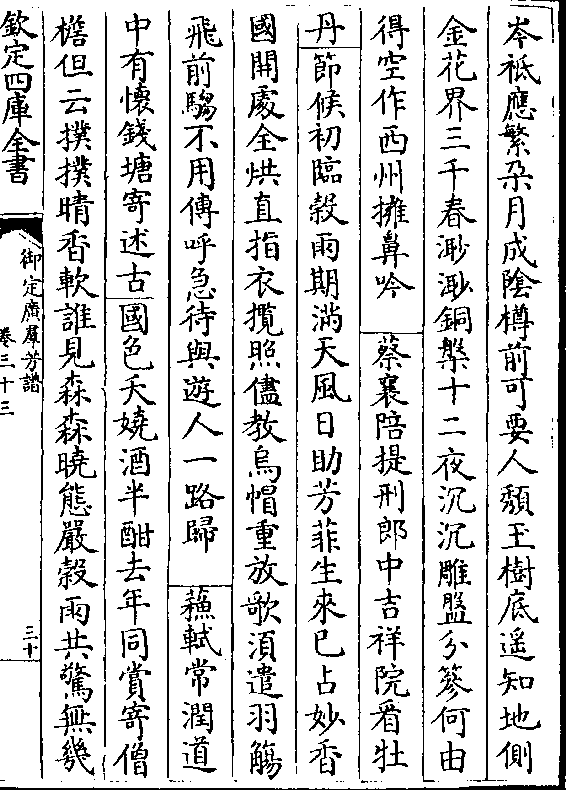 岑秪應繁朶月成陰樽前可要人頽玉樹底遥知地側
金花界三千春渺渺銅槃十二夜沉沉雕盤分篸何由
得空作西州擁鼻吟　蔡襄陪提刑郎中吉祥院看牡
丹　節候初臨穀雨期滿天風日助芳菲生來已占妙香
國開處全烘直指衣攬照儘教烏帽重放歌須遣羽觴
飛前騶不用傳呼急待與遊人一路歸　蘇軾常潤道
中有懷錢塘寄述古　國色夭嬈酒半酣去年同賞寄僧
檐但云撲撲晴香軟誰見森森曉態嚴榖雨共驚無幾
欽定四庫全書
御定廣羣芳譜
卷三十三
三十